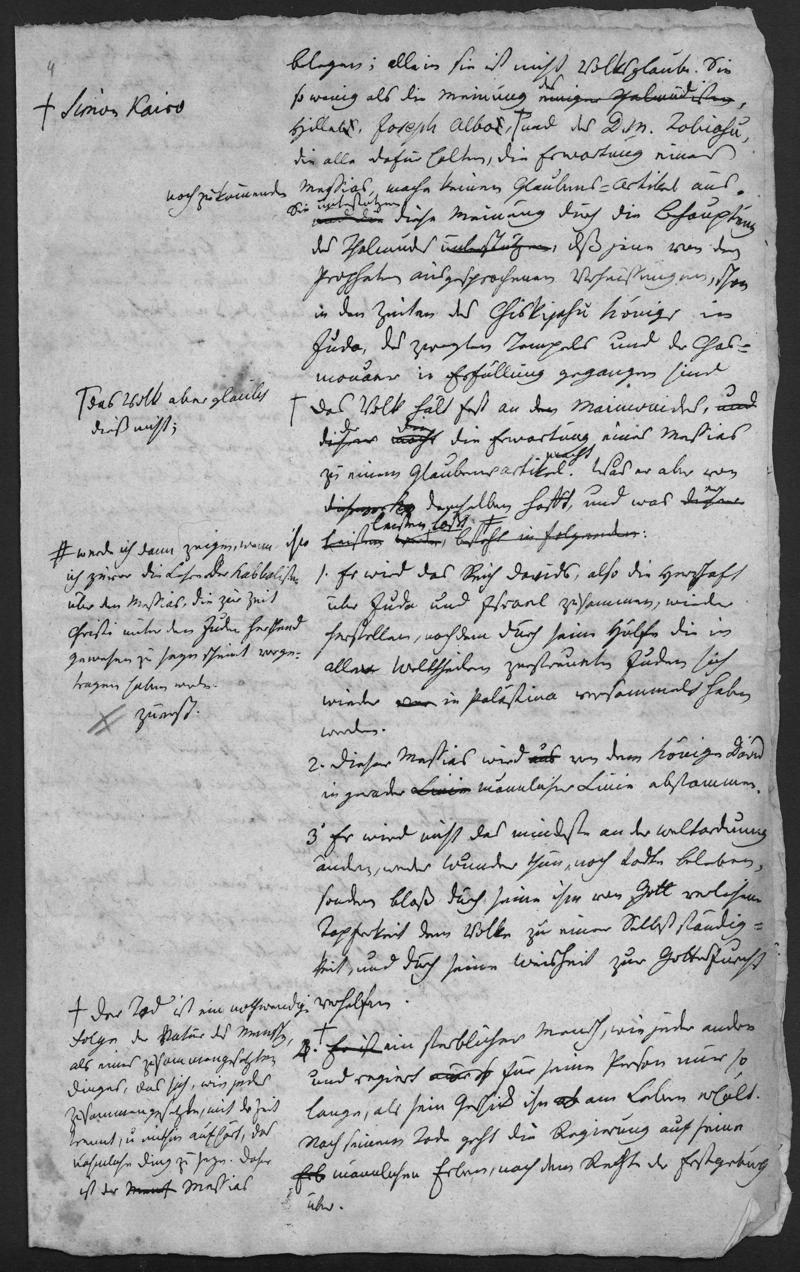 4
† Simon Kairo
belegen; allein sie ist nicht Volksglaube. Sie
so wenig als die Meinung des einiger Thalmudisten,
Hillels, Joseph Albos, † und des D.m. Tobiahu,
die alle dafür halten, die Erwartung eines
noch zu kommenden
Messias, mache keinen Glaubens=Artikel aus.
Sie unterstützen diese Meinung durch die Behauptung
des Thalmudes unterstützen, daß jene von den
Propheten ausgesprochenen Verheissungen, schon
in den Zeiten des Chiskijahu Königs in
Juda, des zweyten Tempels und der Chas=
monäer in Erfüllung gegangen sind
† das Volk aber glaubt
dieß nicht;
† Das Volk hält fest an dem Maimonides, und
dieser macht der die die Erwartung eines Messias
zu einem Glaubensartikel macht. Was er aber von
demselben hofft, und was dieser er
leisten leisten soll, # besteht in folgendem:
# werde ich dann zeigen, wenn
ich zuvor die Lehren der Kabbalisten
über den Messias, die zur Zeit
Christi unter den Juden herrschend
gewesen zu seyn scheint vorge=
tragen haben werde.
zuerst.
1. Er wird das Reich Davids, also die Herrschaft
über Juda und Israel zusammen, wieder
herstellen, nachdem durch seine Hülfe die in
allen Welttheilen zerstreuten Juden sich
wieder in Palästina versammelt haben
werden.
2. Dieser Messias wird aus von dem Könige David
in gerader Linie männlicher Linie abstammen.
3 Er wird nicht das mindeste an der Weltordnung
ändern, weder Wunder thun, noch Todte beleben,
sondern bloß durch seine ihm von Gott verliehene
Tapferkeit dem Volke zu einer Selbstständig=
keit, und durch seine Weisheit zur Gottesfurcht
verhelfen.
† Der Tod ist ein nothwendige
Folge der Natur des Menschen,
als eines zusammengesetzten
Dinges, das sich, wie jedes
Zusammengesetzte, mit der Zeit
trennt, u mithin aufhört, das
nähmliche Ding zu seyn. Daher
ist der Mensch Messias
4. † Er ist ein sterblicher Mensch, wie jeder andere
und regiert für seine Person nur so
lange, als sein Geschick ihn am Leben erhält.
Nach seinem Tode geht die Regierung auf seine
Erb männlichen Erben, nach dem Rechte der Erstgeburt
über.